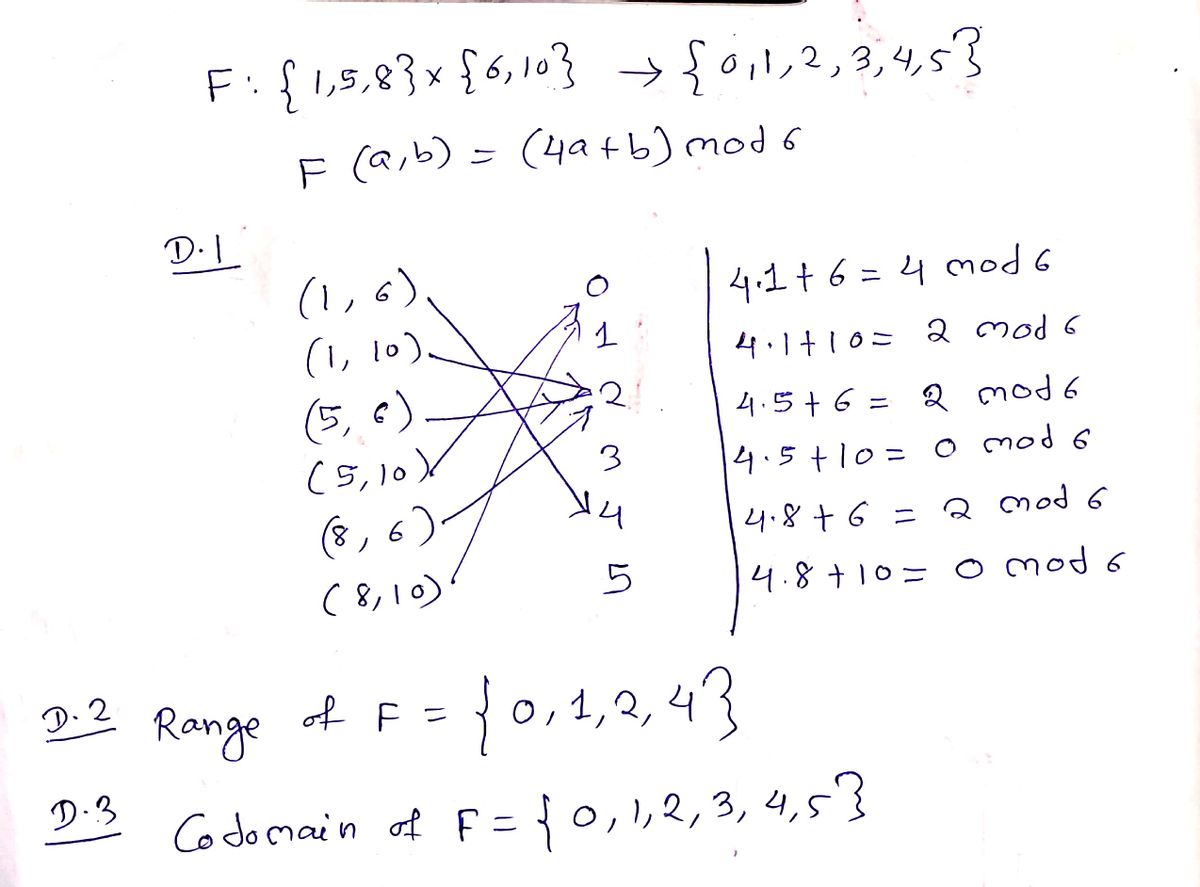 F : { 1,5,8} × {6,10} → { 0,1,2,3,4,5}
F (a,b) = (4a+b) mod 6
D.1
(1, 6) 0 4.1+6 = 4 mod 6
(1, 10) 1 4.1+10= 2 mod 6
(5, 6) 2 4.5+6 = 2 mod 6
(5,10) 3 4.5+10= 0 mod 6
(8, 6) 4 4.8+6 = 2 mod 6
(8,10) 5 4.8+10= 0 mod 6
D.2 Range of F = {0,1,2,4}
D.3 Codomain of F = {0,1,2,3,4,5}